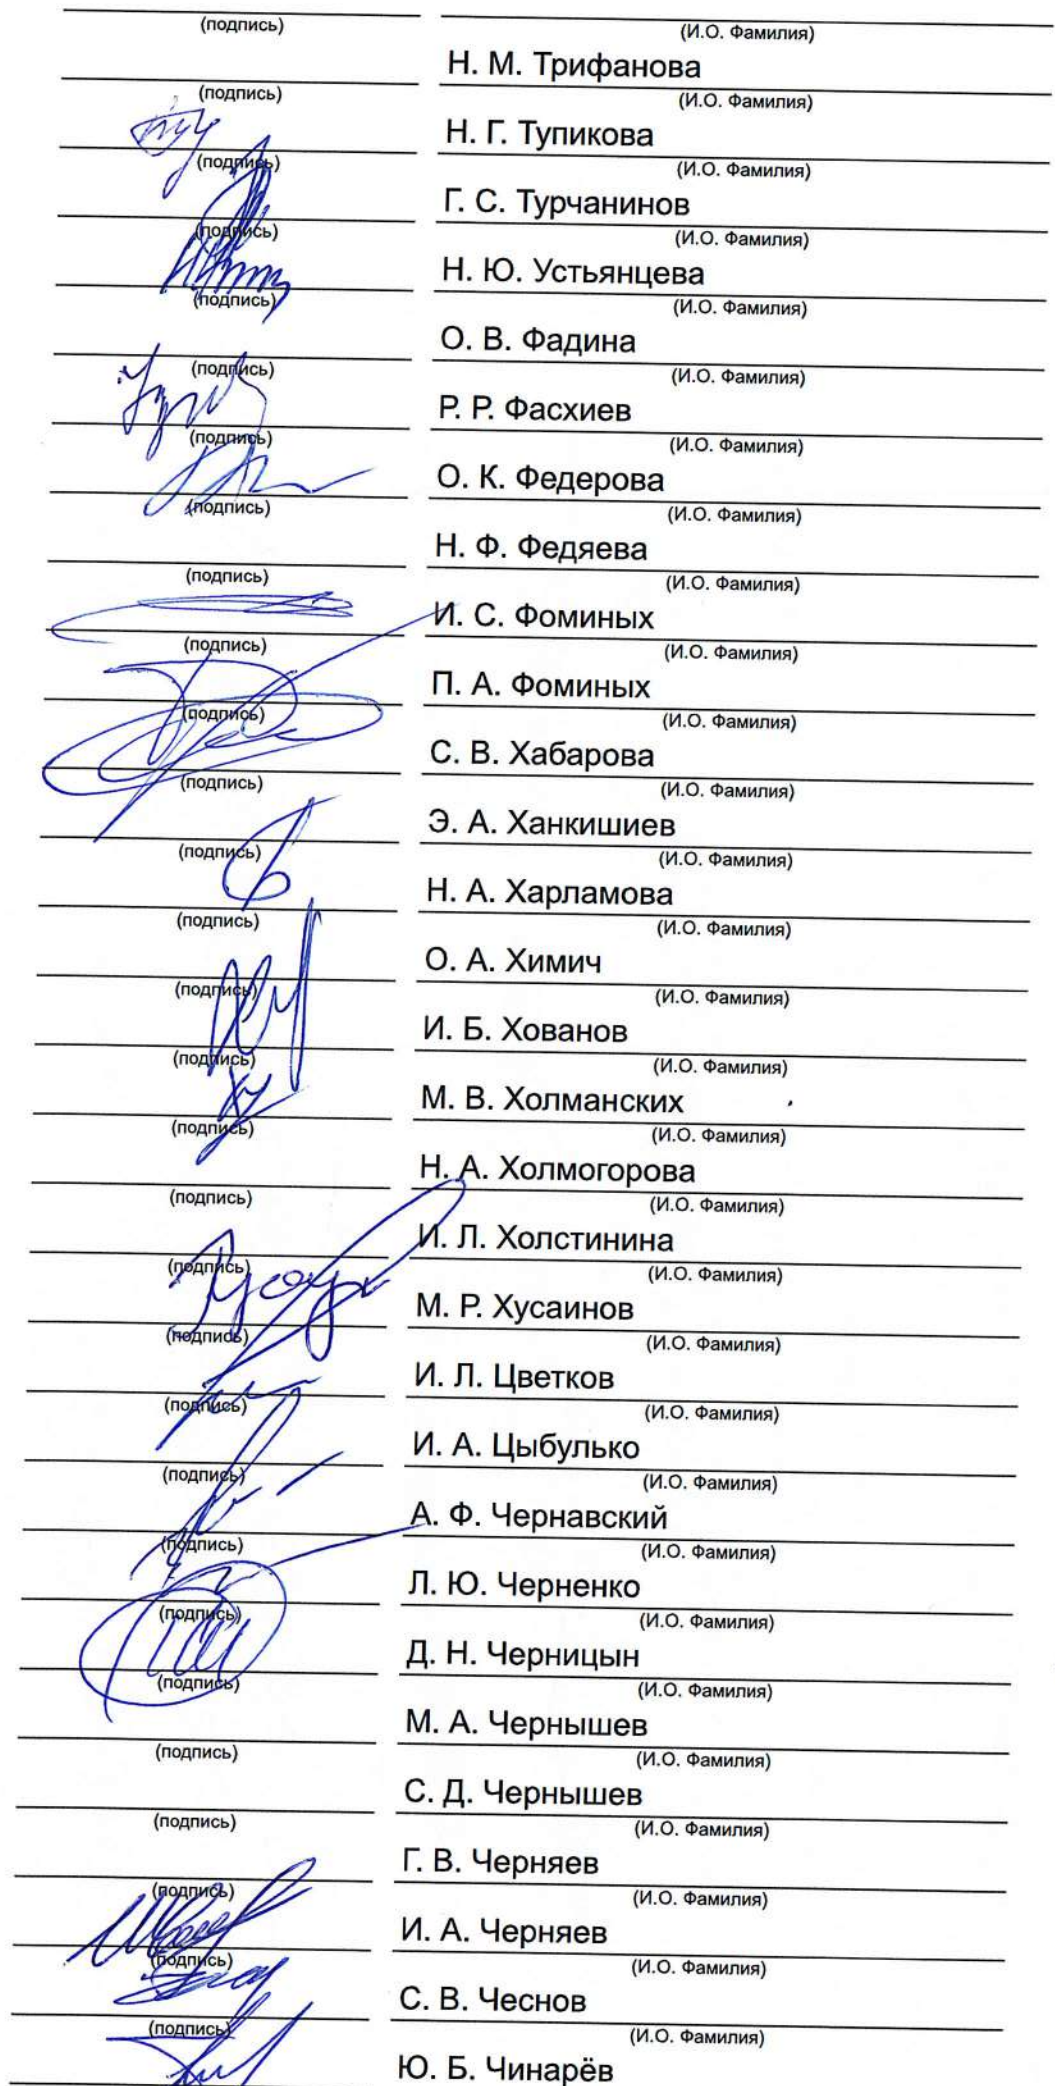 (подпись) (И.О. Фамилия)
Н. М. Трифанова
(подпись) (И.О. Фамилия)
Н. Г. Тупикова
(подпись) (И.О. Фамилия)
Г. С. Турчанинов
(подпись) (И.О. Фамилия)
Н. Ю. Устьянцева
(подпись) (И.О. Фамилия)
О. В. Фадина
(подпись) (И.О. Фамилия)
Р. Р. Фасхиев
(подпись) (И.О. Фамилия)
О. К. Федерова
(подпись) (И.О. Фамилия)
Н. Ф. Федяева
(подпись) (И.О. Фамилия)
И. С. Фоминых
(подпись) (И.О. Фамилия)
П. А. Фоминых
(подпись) (И.О. Фамилия)
С. В. Хабарова
(подпись) (И.О. Фамилия)
Э. А. Ханкишиев
(подпись) (И.О. Фамилия)
Н. А. Харламова
(подпись) (И.О. Фамилия)
О. А. Химич
(подпись) (И.О. Фамилия)
И. Б. Хованов
(подпись) (И.О. Фамилия)
М. В. Холманских
(подпись) (И.О. Фамилия)
Н. А. Холмогорова
(подпись) (И.О. Фамилия)
И. Л. Холстинина
(подпись) (И.О. Фамилия)
М. Р. Хусаинов
(подпись) (И.О. Фамилия)
И. Л. Цветков
(подпись) (И.О. Фамилия)
И. А. Цыбулько
(подпись) (И.О. Фамилия)
А. Ф. Чернавский
(подпись) (И.О. Фамилия)
Л. Ю. Черненко
(подпись) (И.О. Фамилия)
Д. Н. Черницын
(подпись) (И.О. Фамилия)
М. А. Чернышев
(подпись) (И.О. Фамилия)
С. Д. Чернышев
(подпись) (И.О. Фамилия)
Г. В. Черняев
(подпись) (И.О. Фамилия)
И. А. Черняев
(подпись) (И.О. Фамилия)
С. В. Чеснов
(подпись) (И.О. Фамилия)
Ю. Б. Чинарёв